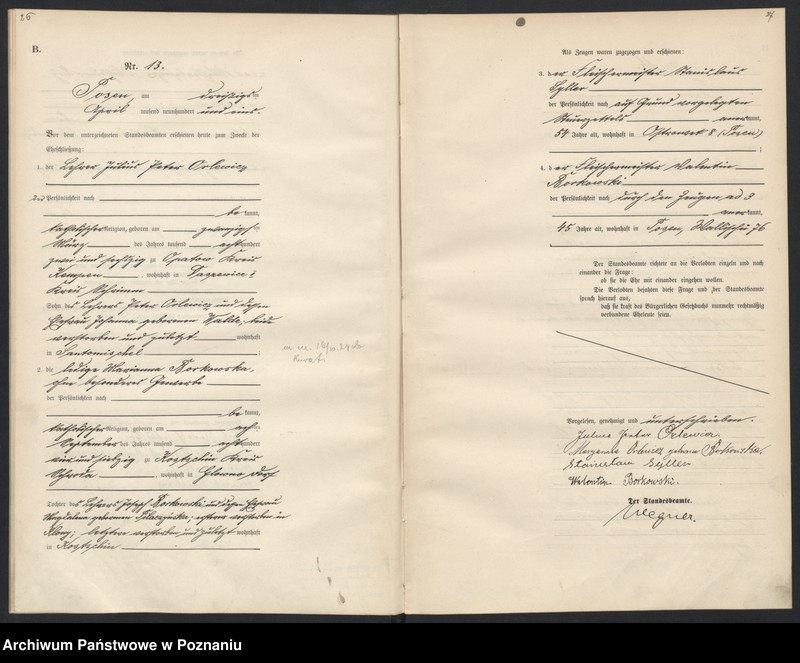 26
B.
Nr. 13.
Posen, am dreißigsten
April tausend neunhundert und eins.
Vor dem unterzeichneten Standesbeamten erschienen heute zum Zwecke der
Eheschließung:
1. der Lehrer Julius Peter Orlewicz
der Persönlichkeit nach
be kannt,
katholischer Religion, geboren am zwanzigsten
März des Jahres tausend acht hundert
zwei und sechzig zu Opatow Kreis
Kempen, wohnhaft in
Kreis Schrimm
Sohn des Lehrers Peter Orlewicz und dessen
Ehefrau Johanna geborenen Halbe, beide
verstorben und zuletzt wohnhaft
in Santomischel
2. die ledige Marianna Borkowska,
ohne besonderes Gewerbe
der Persönlichkeit nach
be kannt,
katholischer Religion, geboren am achten
September des Jahres tausend acht hundert
vier und siebzig zu Kostschin Kreis
Schroda, wohnhaft in Glowno, Dorf
Tochter des Lehrers Joseph Borkowski und dessen Ehefrau
Magdalena geborenen; ersterer verstorben in
Klony; letztere verstorben und zuletzt wohnhaft
in Kostschin
Als Zeugen waren zugezogen und erschienen:
3. der Fleischermeister Stanislaus
Syller
der Persönlichkeit nach auf Grund vorgelegten
Steuerzettels anerkannt,
54 Jahre alt, wohnhaft in Ostrowek 8 (Posen);
4. der Fleischermeister Valentin
Borkowski
der Persönlichkeit nach durch den Zeugen ad 3
anerkannt,
45 Jahre alt, wohnhaft in Posen, Wallischei 76
Der Standesbeamte richtete an die Verlobten einzeln und nach
einander die Frage:
ob sie die Ehe mit einander eingehen wollen.
Die Verlobten bejahten diese Frage und der Standesbeamte
sprach hierauf aus,
daß sie kraft des Bürgerlichen Gesetzbuchs nunmehr rechtmäßig
verbundene Eheleute seien.
Vorgelesen, genehmigt und unterschrieben.
Julius Peter Orlewicz
Maryanna Orlewicz geborene Borkowska
Stanislaus Syller
Walentin Borkowski.
Der Standesbeamte.
Wegner.
Archiwum Państwowe w Poznaniu